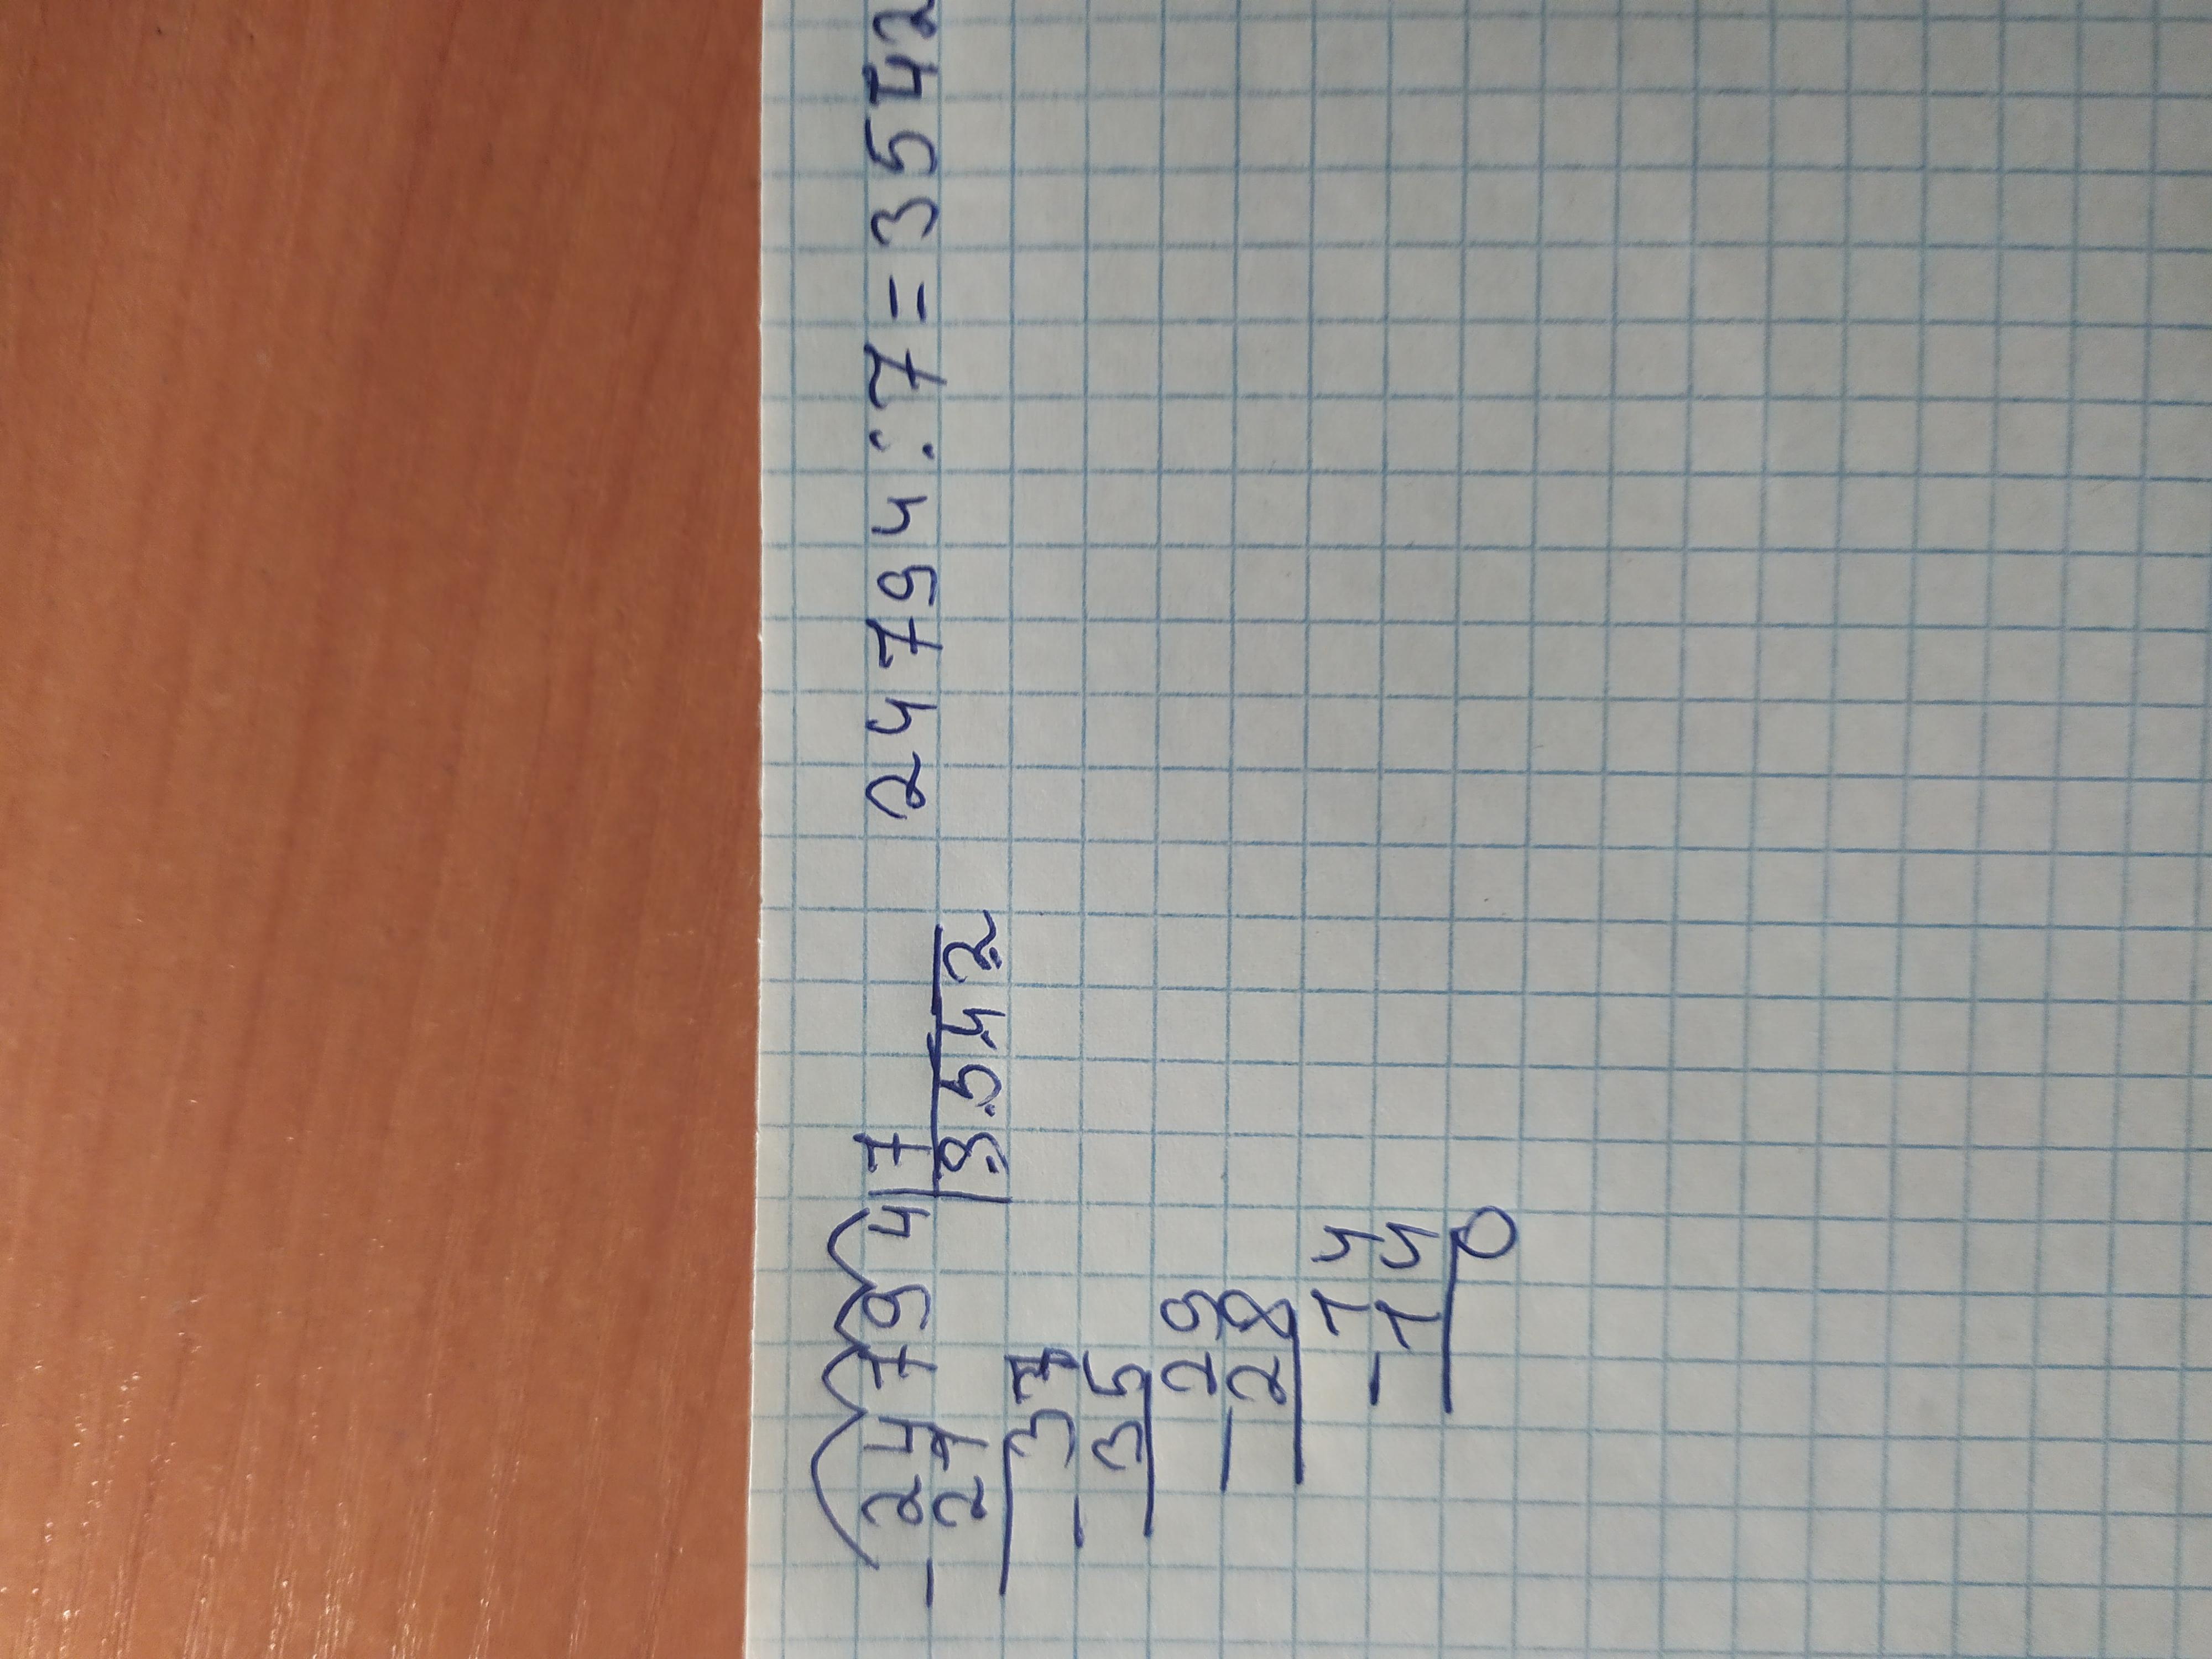 24794 7 24794:7=3542
-21 3542
37
-35
29
-28
14
-14
0